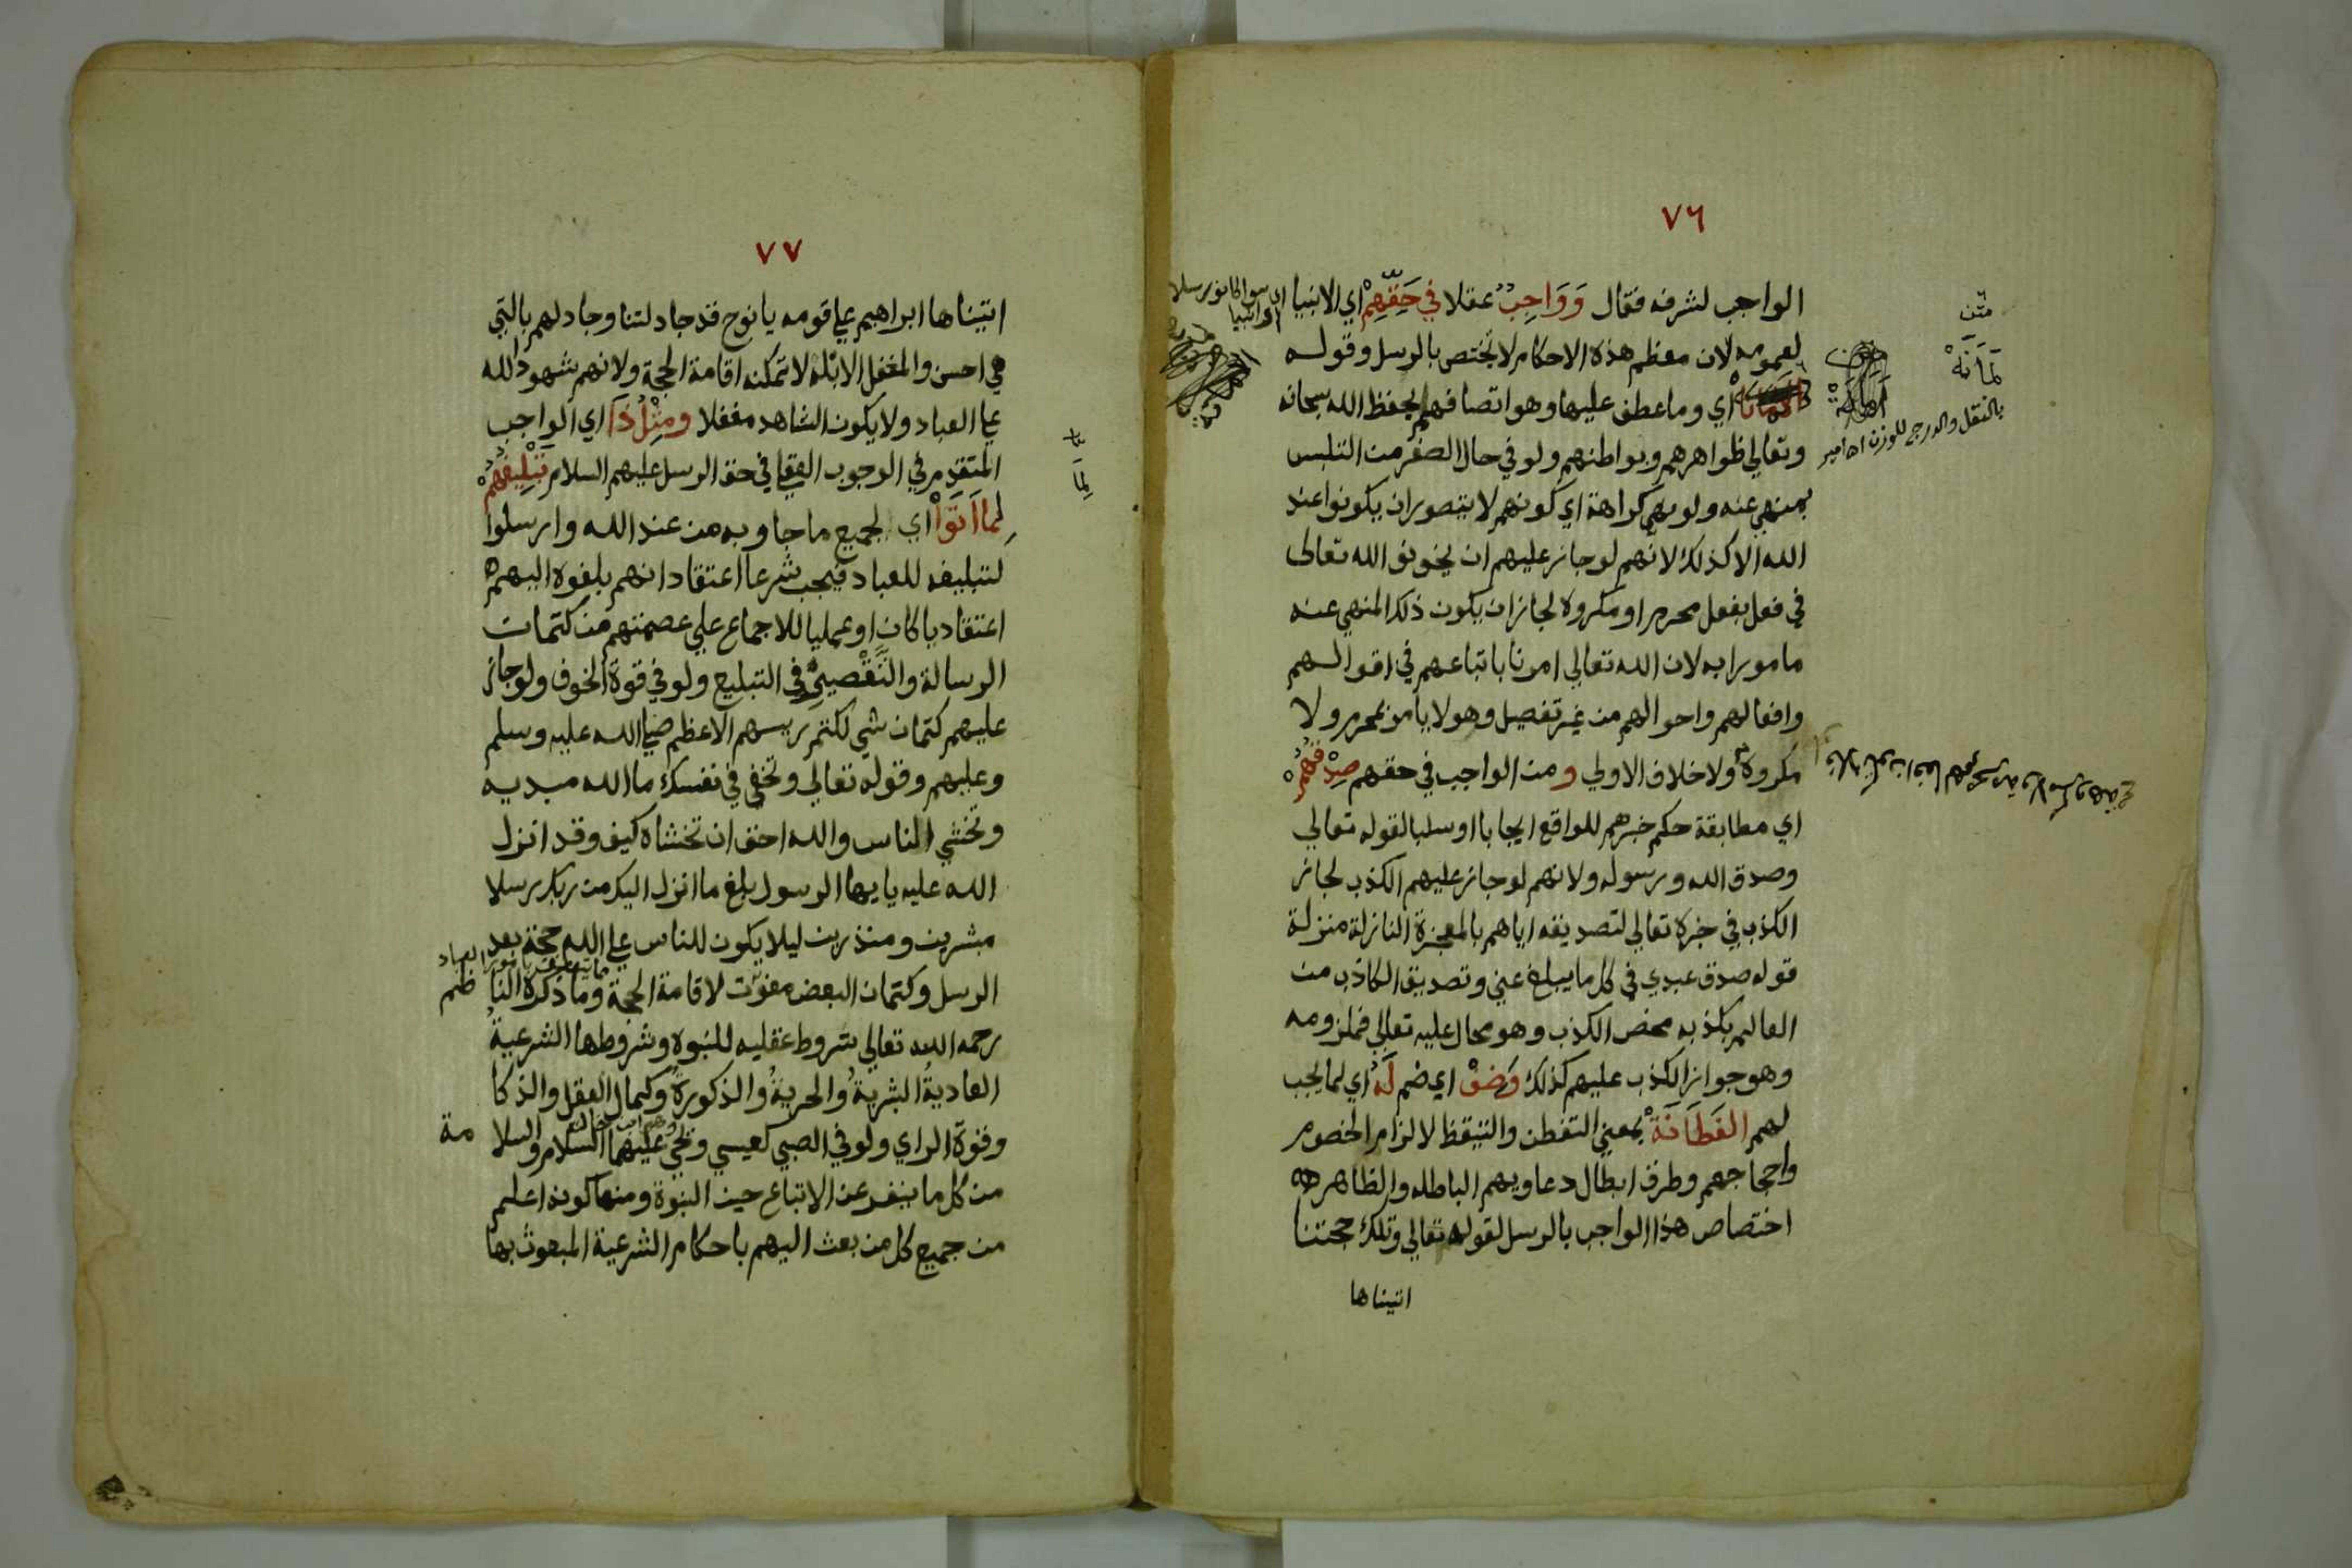 ٧٦
الواجب لشرفه فقال وَوَاجِبٌ عقلا في حَقِّهِمْ اي الانبيا
لعمومه لان معظم هذه الاحكام لا تختص بالرسل وقوله
اي وما عطف عليها وهو اتصافهم بحفظ الله سبحانه
وتعالي ظواهرهم وبواطنهم ولو في حال الصغر من التلبس
بمنهي عنه ولو نهي كراهة اي كونهم لا يتصور ان يكونوا عند
الله الا كذلك لانهم لو جاز عليهم ان يخونوا الله تعالى
في فعل بفعل محرم او مكروه لجاز ان يكون ذلك المنهي عنه
مامورا به لان الله تعالي امرنا باتباعهم في اقوالهم
وافعالهم واحوالهم من غير تفصيل وهو لا يامر بمحرم ولا
مكروه ولا خلاف الاولي و من الواجب في حقهم صِدْقُهُمْ
اي مطابقة حكم خبرهم للواقع ايجابا او سلبا لقوله تعالي
وصدق الله ورسوله ولانهم لو جاز عليهم الكذب لجاز
الكذب في خبره تعالي لتصديقه اياهم بالمعجزة النازلة منزلة
قوله صدق عبدي في كل ما يبلغ عني وتصديق الكاذب من
العالم بكذبه محض الكذب وهو محال عليه تعالي فملزومه
وهو جواز الكذب عليهم كذلك وَضِفْ اي ضم لَهُ اي لما يجب
لهم الفَطَانَةْ بمعني التفطن والتيقظ لالزام الخصوم
واحجاجهم وطرق ابطال دعاويهم الباطله والظاهر
اختصاص هذا الواجب بالرسل لقوله تعالي وتلك حجتنا
اتيناها
متن
بالنقل والدرج للوزن اه امير
٧٧
اتيناها ابراهيم علي قومه يا نوح قد جادلتنا وجادلهم بالتي
هي احسن والمغفل الابله لا تمكنه اقامة الحجة ولانهم شهود الله
علي العباد ولا يكون الشاهد مغفلا ومِثْلُ ذَا اي الواجب
المتقدم في الوجوب العقلي في حق الرسل عليهم السلام تَبْلِيغُهُمْ
لِمَا اَتَوْا اي لجميع ما جاوا به من عند الله وارسلوا
لتبليغه للعباد فيجب شرعا اعتقاد انهم بلغوه اليهم
اعتقاديا كان او عمليا للاجماع علي عصمتهم من كتمان
الرسالة والتَّقْصير في التبليغ ولو في قوة الخوف ولو جاز
عليهم كتمان شي لكتم رييسهم الاعظم صلي الله عليه وسلم
وعليهم وقوله تعالي وتخفي في نفسك ما الله مبديه
وتخشي الناس والله احق ان تخشاه كيف وقد انزل
الله عليه يا يها الرسول بلغ ما انزل اليك من ربك رسلا
مبشرين ومنذرين ليلا يكون للناس علي الله حجة بعد
الرسل وكتمان البعض مفوّت لاقامة الحجة وما ذكره النا ظم
رحمه الله تعالي شروط عقليه للنبوه وشروطها الشرعية
العادية البشرية والحرية والذكورة وكمال العقل والذكا
وقوة الراي ولو في الصبي كعيسي ويحي عليهما السلام والسلا مة
من كل ما ينفر عن الاتباع حين النبوة ومنها كونه اعلم
من جميع كل من بعث اليهم باحكام الشرعية المبعوث بها